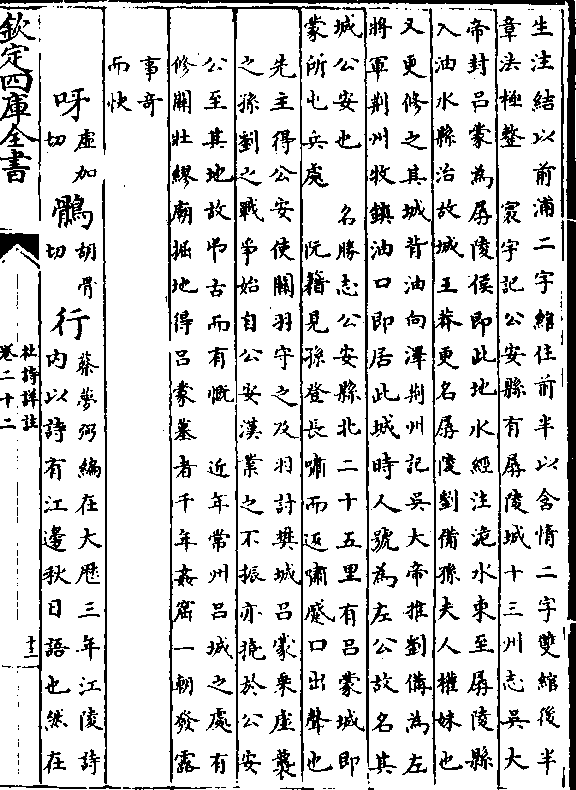 生注結以前浦二字綰住前半以含情二字雙綰後半
章法極整　寰宇記公安縣有孱陵城十三州志吳大
帝封呂蒙為孱陵侯即此地水經注洈水東至孱陵縣
入油水縣治故城王莽更名孱陵劉備孫夫人權妹也
又更修之其城背油向澤荆州記吳大帝推劉備為左
將軍荆州牧鎮油口即居此城時人號為左公故名其
城公安也　名勝志公安縣北二十五里有呂蒙城即
蒙所屯兵處　阮籍見孫登長嘯而返嘯蹙口出聲也
先主得公安使關羽守之及羽討樊城呂蒙乗虛襲
之孫劉之戰爭始自公安漢業之不振亦挫於公安
公至其地故弔古而有慨　近年常州呂城之處有
修關壯繆廟掘地得呂蒙墓者千年姦窟一朝發露
事奇
而快
呀虛加切鶻胡骨切行蔡夢弼編在大厯三年江陵詩
内以詩有江邊秋日語也然在
欽定四庫全書
杜詩詳註
卷二十二
十三